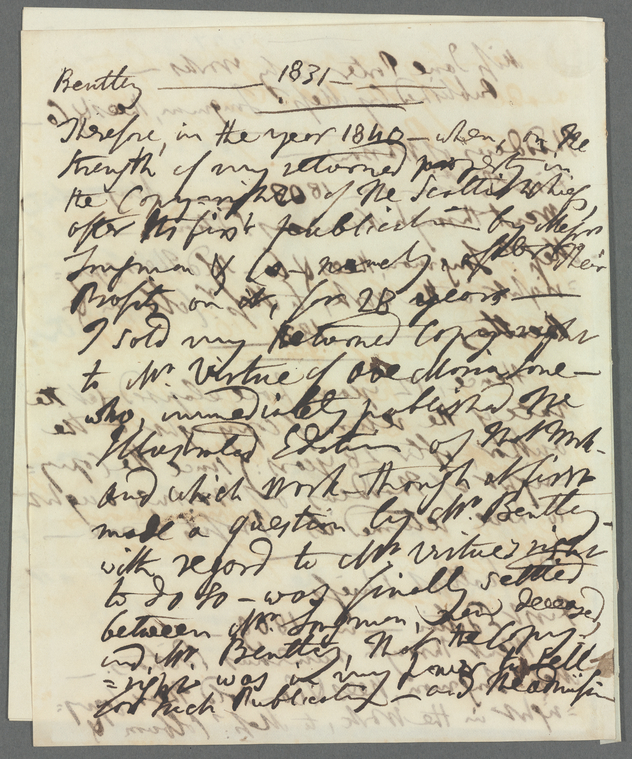 Bentley — 1831 —
Therefore, in the year 1840 — when, on the
strength of my returned property in
the Copy-right of the Scottish Chiefs,
after its first publication by Messrs
Longman & Co — namely after their
Profits on it, for 28 years —
I sold my returned Copyright
to Mr. Virtue of Ave Maria Lane —
who, immediately published the
Illustrated Edition of that Work —
and which work — though at first
made a question by Mr. Bentley
with regard to Mr Virtue's right
to do so — was finally settled
between Mr. Longman, (now deceased)
and Mr. Bentley, that the Copy-
=right was in my power to sell —
for such Publication — and the admission